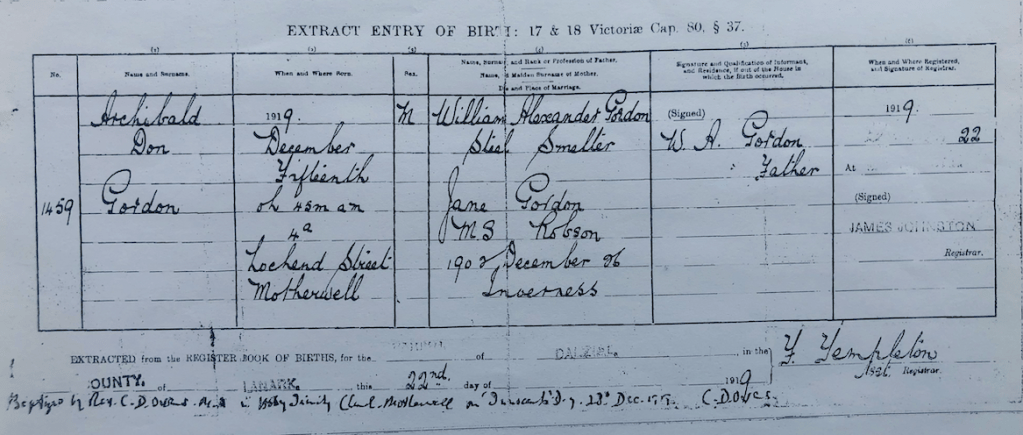 EXTRACT ENTRY OF BIRTH: 17 & 18 Victoriæ Cap. 80, § 37.
(1) (2) (3) (4) (5) (6)
No.
Name and Surname.
When and Where Born.
Sex.
Name, Surname, and Rank or Profession of Father.
Name, and Maiden Surname of Mother.
Date and Place of Marriage.
Signature and Qualification of Informant,
and Residence, if out of the House in
which the Birth occurred.
When and Where Registered,
and Signature of Registrar.
1459
Archibald
Don
Gordon
1919.
December
Fifteenth
0h 45m am
4a
Lochend Street
Motherwell
M
William Alexander Gordon
Steel Smelter
Jane Gordon
M.S Robson
1902, December 26
Inverness
(Signed)
W. A. Gordon
Father
1919.
22
At
(Signed)
JAMES JOHNSTON
Registrar.
EXTRACTED from the REGISTER BOOK OF BIRTHS, for the PARISH of DALZIEL. in the
COUNTY. of LANARK. this 22nd. day of 1919
Y. Templeton
Asst. Registrar.
Baptized by Rev. C. D. in Holy Trinity Motherwell Dec.